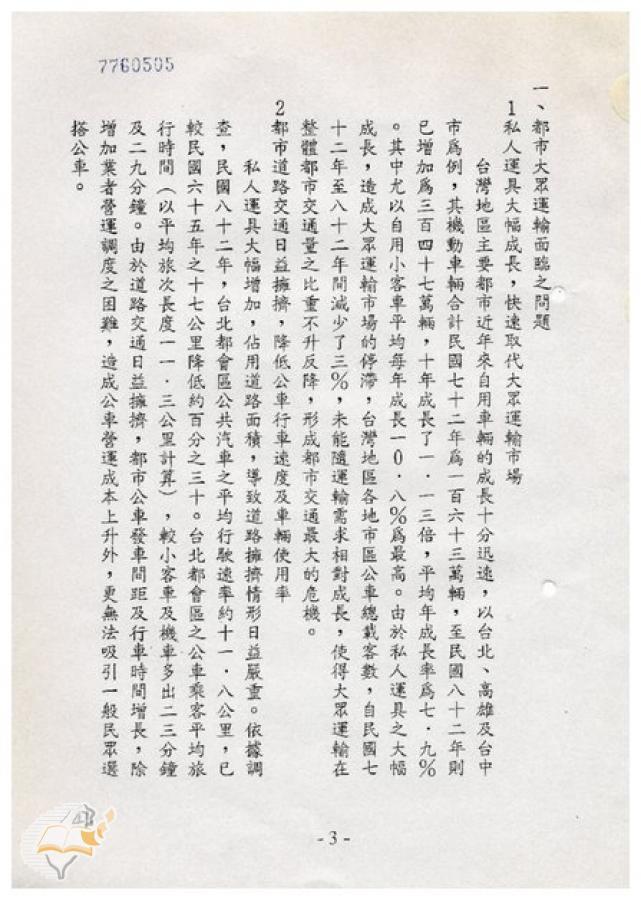 7760505
一、都市大眾運輸面臨之問題
1私人運具大幅成長，快速取代大眾運輸市場
台灣地區主要都市近年來自用車輛的成長十分迅速，以台北、高雄及台中
市為例，其機動車輛合計民國七十二年為一百六十三萬輛，至民國八十二年則
已增加為三百四十七萬輛，十年成長了一．一三倍，平均年成長率為七．九%
。其中尤以自用小客車平均每年成長一0．八%為最高。由於私人運具之大幅
成長，造成大眾運輸市場的停滯，台灣地區各地市區公車總載客數，自民國七
十二年至八十二年間減少了三%，未能隨運輸需求相對成長，使得大眾運輸在
整體都市交通量之比重不升反降，形成都市交通最大的危機。
2都市道路交通日益擁擠，降低公車行車速度及車輛使用率
私人運具大幅增加，佔用道路面積，導致道路擁擠情形日益嚴重。依據調
查，民國八十二年，台北都會區公共汽車之平均行駛速率約十一．八公里，已
較民國六十五年之十七公里降低約百分之三十。台北都會區之公車乘客平均旅
行時間（以平均旅次長度一一．三公里計算），較小客車及機車多出二三分鐘
及二九分鐘。由於道路交通日益擁擠，都市公車發車間距及行車時間增長，除
增加業者營運調度之困難，造成公車營運成本上升外，更無法吸引一般民眾選
搭公車。
- 3 -